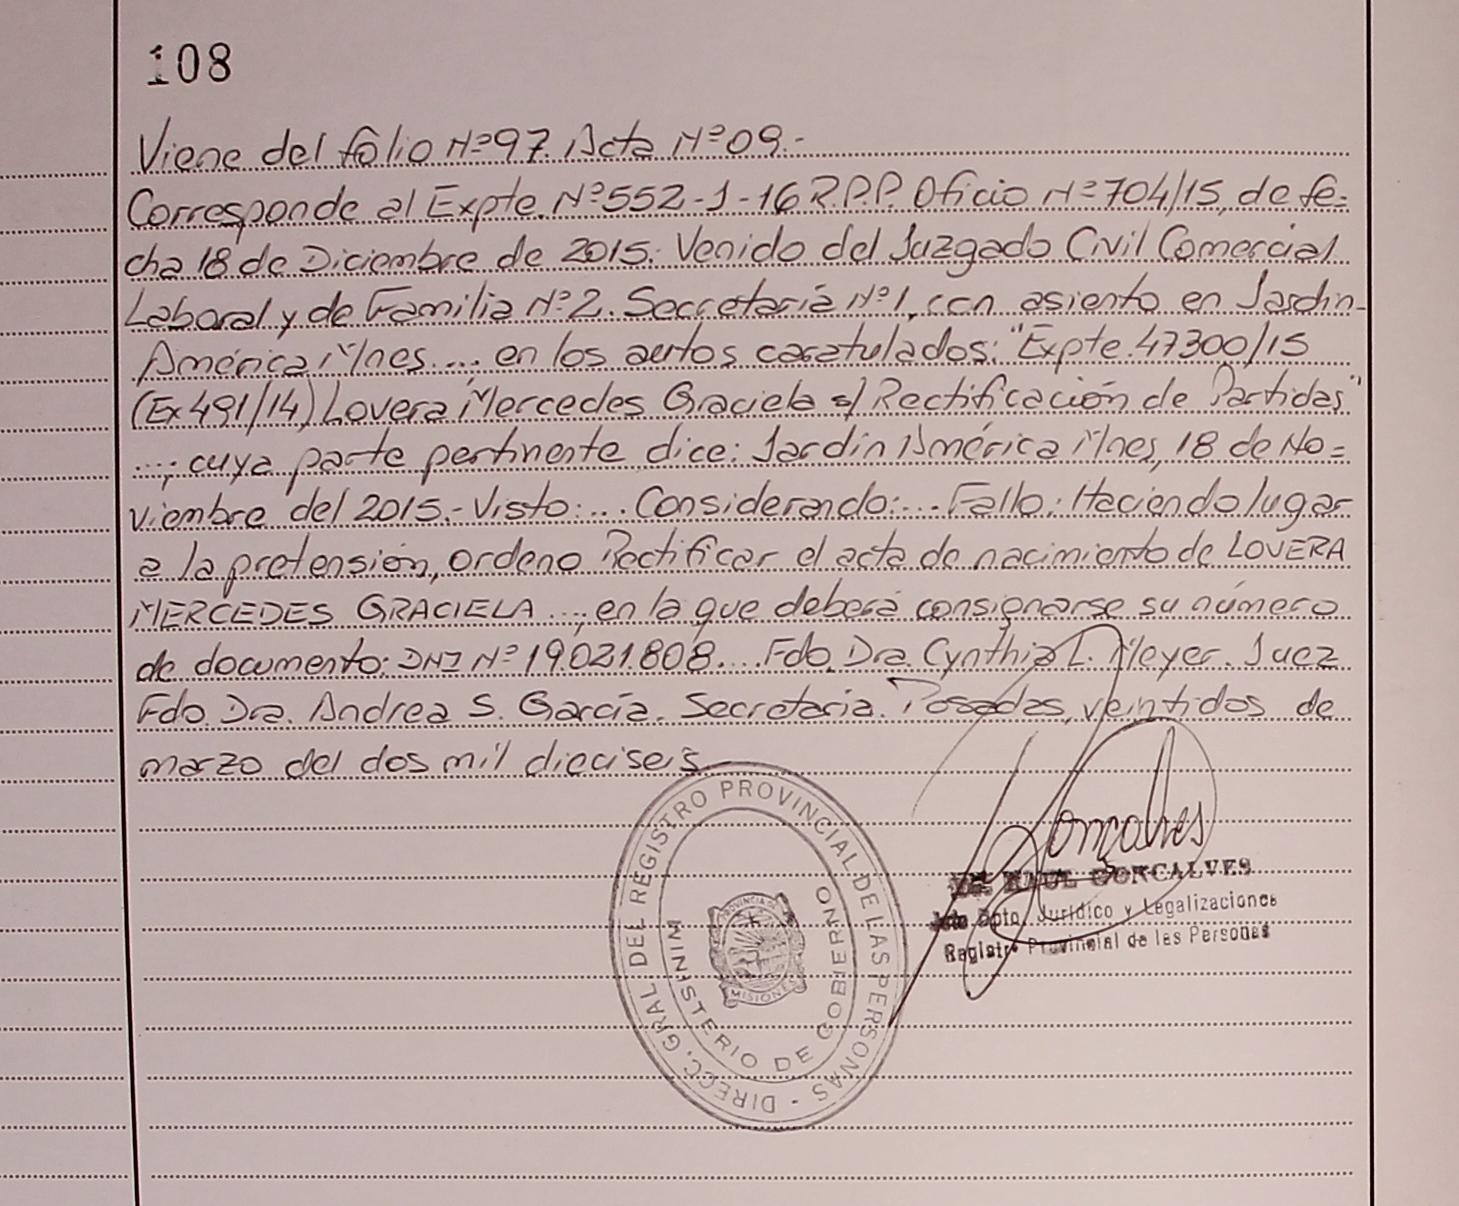 108
Viene del folio Nº97. Acta Nº09.-
Corresponde al Expte. Nº552-J-16 R.P.P. Oficio Nº704/15, de fe=
cha 18 de Diciembre de 2015. Venido del Juzgado Civil Comercial
Laboral y de Familia Nº2. Secretaría Nº1, con asiento en Jardín-
América Mnes.... en los autos caratulados: "Expte.47300/15
(Ex 491/14) Lovera Mercedes Graciela s/ Rectificación de Partidas"
...; cuya parte pertinente dice: Jardín América Mnes, 18 de No=
viembre del 2015.- Visto:... Considerando:... Fallo: Haciendo lugar
a la pretensión, ordeno Rectificar el acta de nacimiento de LOVERA
MERCEDES GRACIELA ...; en la que deberá consignarse su número
de documento: DNI Nº19.021.808.... Fdo. Dra. Cynthia L. Meyer. Juez
Fdo. Dra. Andrea S. García. Secretaria. Posadas, veintidos de
marzo del dos mil dieciseis
Goncalves
RAUL GONCALVES
Dpto. Jurídico y Legalizaciones
Registro Provincial de las Personas
DIRECC. GRAL DEL REGISTRO PROVINCIAL DE LAS PERSONAS -
MINISTERIO DE GOBIERNO
PROVINCIA DE
MISIONES